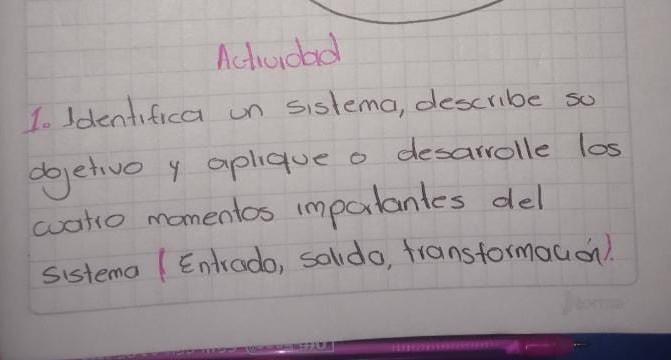 Actividad
1. Identifica un sistema, describe so
objetivo y aplique o desarrolle los
cuatro momentos importantes del
sistema (Entrada, salida, transformación).